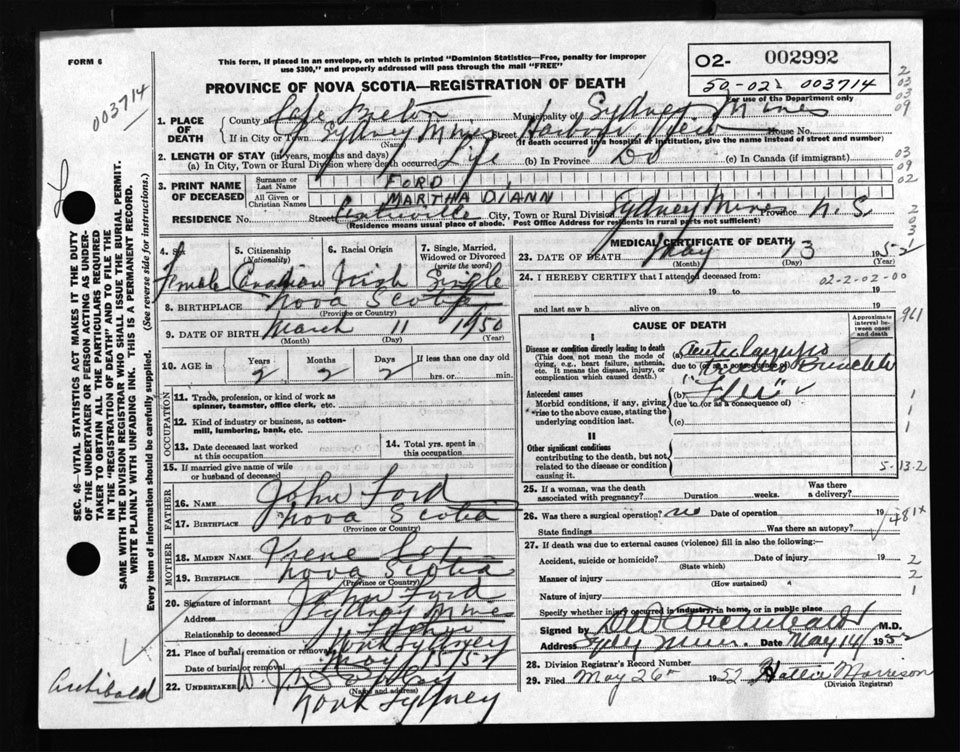 FORM 6
This form, if placed in an envelope, on which is printed "Dominion Statistics—Free, penalty for improper
use $300," and properly addressed will pass through the mail "FREE"
02- 002992
50-02 003714
For use of the Department only
PROVINCE OF NOVA SCOTIA—REGISTRATION OF DEATH
003714
1. PLACE OF DEATH
County of Cape Breton Municipality of Sydney Mines
If in City or Town Sydney Mines Street Harbour View House No.
(Name) (If death occurred in a hospital or institution, give the name instead of street and number)
2. LENGTH OF STAY (in years, months and days)
(a) In City, Town or Rural Division where death occurred Life (b) In Province Do (c) In Canada (if immigrant)
3. PRINT NAME OF DECEASED
Surname or Last Name FORD
All Given or Christian Names MARTHA DIANN
RESIDENCE No. Street City, Town or Rural Division Sydney Mines Province N.S.
(Residence means usual place of abode. Post Office Address for residents in rural parts not sufficient)
4. Sex Female
5. Citizenship (Nationality) Canadian
6. Racial Origin Irish
7. Single, Married, Widowed or Divorced (write the word) Single
8. BIRTHPLACE Nova Scotia
(Province or Country)
9. DATE OF BIRTH March 11 1950
(Month) (Day) (Year)
10. AGE in Years 2 Months 2 Days 2 If less than one day old
hrs. or min.
OCCUPATION
11. Trade, profession, or kind of work as
spinner, teamster, office clerk, etc.
12. Kind of industry or business, as cotten-
mill, lumbering, bank, etc.
13. Date deceased last worked
at this occupation
14. Total yrs. spent in
this occupation
15. If married give name of wife
or husband of deceased
FATHER
16. NAME John Ford
17. BIRTHPLACE Nova Scotia
(Province or Country)
MOTHER
18. MAIDEN NAME Irene
19. BIRTHPLACE Nova Scotia
(Province or Country)
20. Signature of informant John Ford
Address Sydney Mines
Relationship to deceased Father
21. Place of burial, cremation or removal North Sydney
Date of burial or removal May 15/52
22. UNDERTAKER W. J.
(Name and address)
North Sydney
MEDICAL CERTIFICATE OF DEATH
23. DATE OF DEATH May 13 1952
(Month) (Day)
24. I HEREBY CERTIFY that I attended deceased from:
19 to 19
02-2-02-00
and last saw h alive on 19
961
CAUSE OF DEATH
Approximate interval between onset and death
I
Disease or condition directly leading to death
(This does not mean the mode of
dying, e.g., heart failure, asthenia,
etc. It means the disease, injury, or
complication which caused death.)
(a)
due to (or as a consequence of)
Antecedent causes
Morbid conditions, if any, giving
rise to the above cause, stating the
underlying condition last.
(b) "Flu"
due to (or as a consequence of)
(c)
II
Other significant conditions
contributing to the death, but not
related to the disease or condition
causing it.
5-13-2
25. If a woman, was the death
associated with pregnancy? Duration weeks. Was there
a delivery?
26. Was there a surgical operation? no Date of operation 19
State findings Was there an autopsy?
481x
27. If death was due to external causes (violence) fill in also the following:—
Accident, suicide or homicide? Date of injury 19
(State which)
Manner of injury
(How sustained)
Nature of injury
Specify whether injury occurred in industry, in home, or in public place
Signed by Archibald M.D.
Address Sydney Mines Date May 14 1952
28. Division Registrar's Record Number
29. Filed May 26th 1952 Hattie Morrison
(Division Registrar)
SEC. 46—VITAL STATISTICS ACT MAKES IT THE DUTY
OF THE UNDERTAKER OR PERSON ACTING AS UNDER-
TAKER TO OBTAIN ALL THE PARTICULARS REQUIRED
IN THE "REGISTRATION OF DEATH" AND TO FILE THE
SAME WITH THE DIVISION REGISTRAR WHO SHALL ISSUE THE BURIAL PERMIT.
WRITE PLAINLY WITH UNFADING INK. THIS IS A PERMANENT RECORD.
Every item of information should be carefully supplied. (See reverse side for instructions.)
Archibald